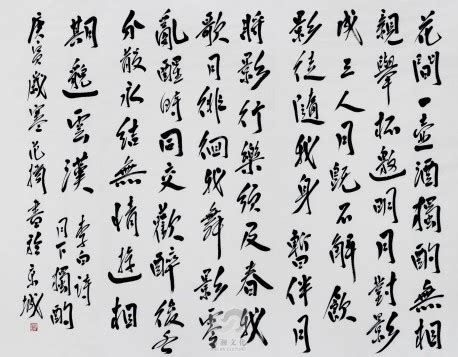 花間一壺酒獨酌無相
親舉杯邀明月對影
成三人月既不解飲
影徒隨我身暫伴月
將影行樂須及春我
歌月徘徊我舞影零
亂醒時同交歡醉後各
分散永結無情遊相
期邈雲漢
李白詩
月下獨酌
庚寅歲寒 書於京城